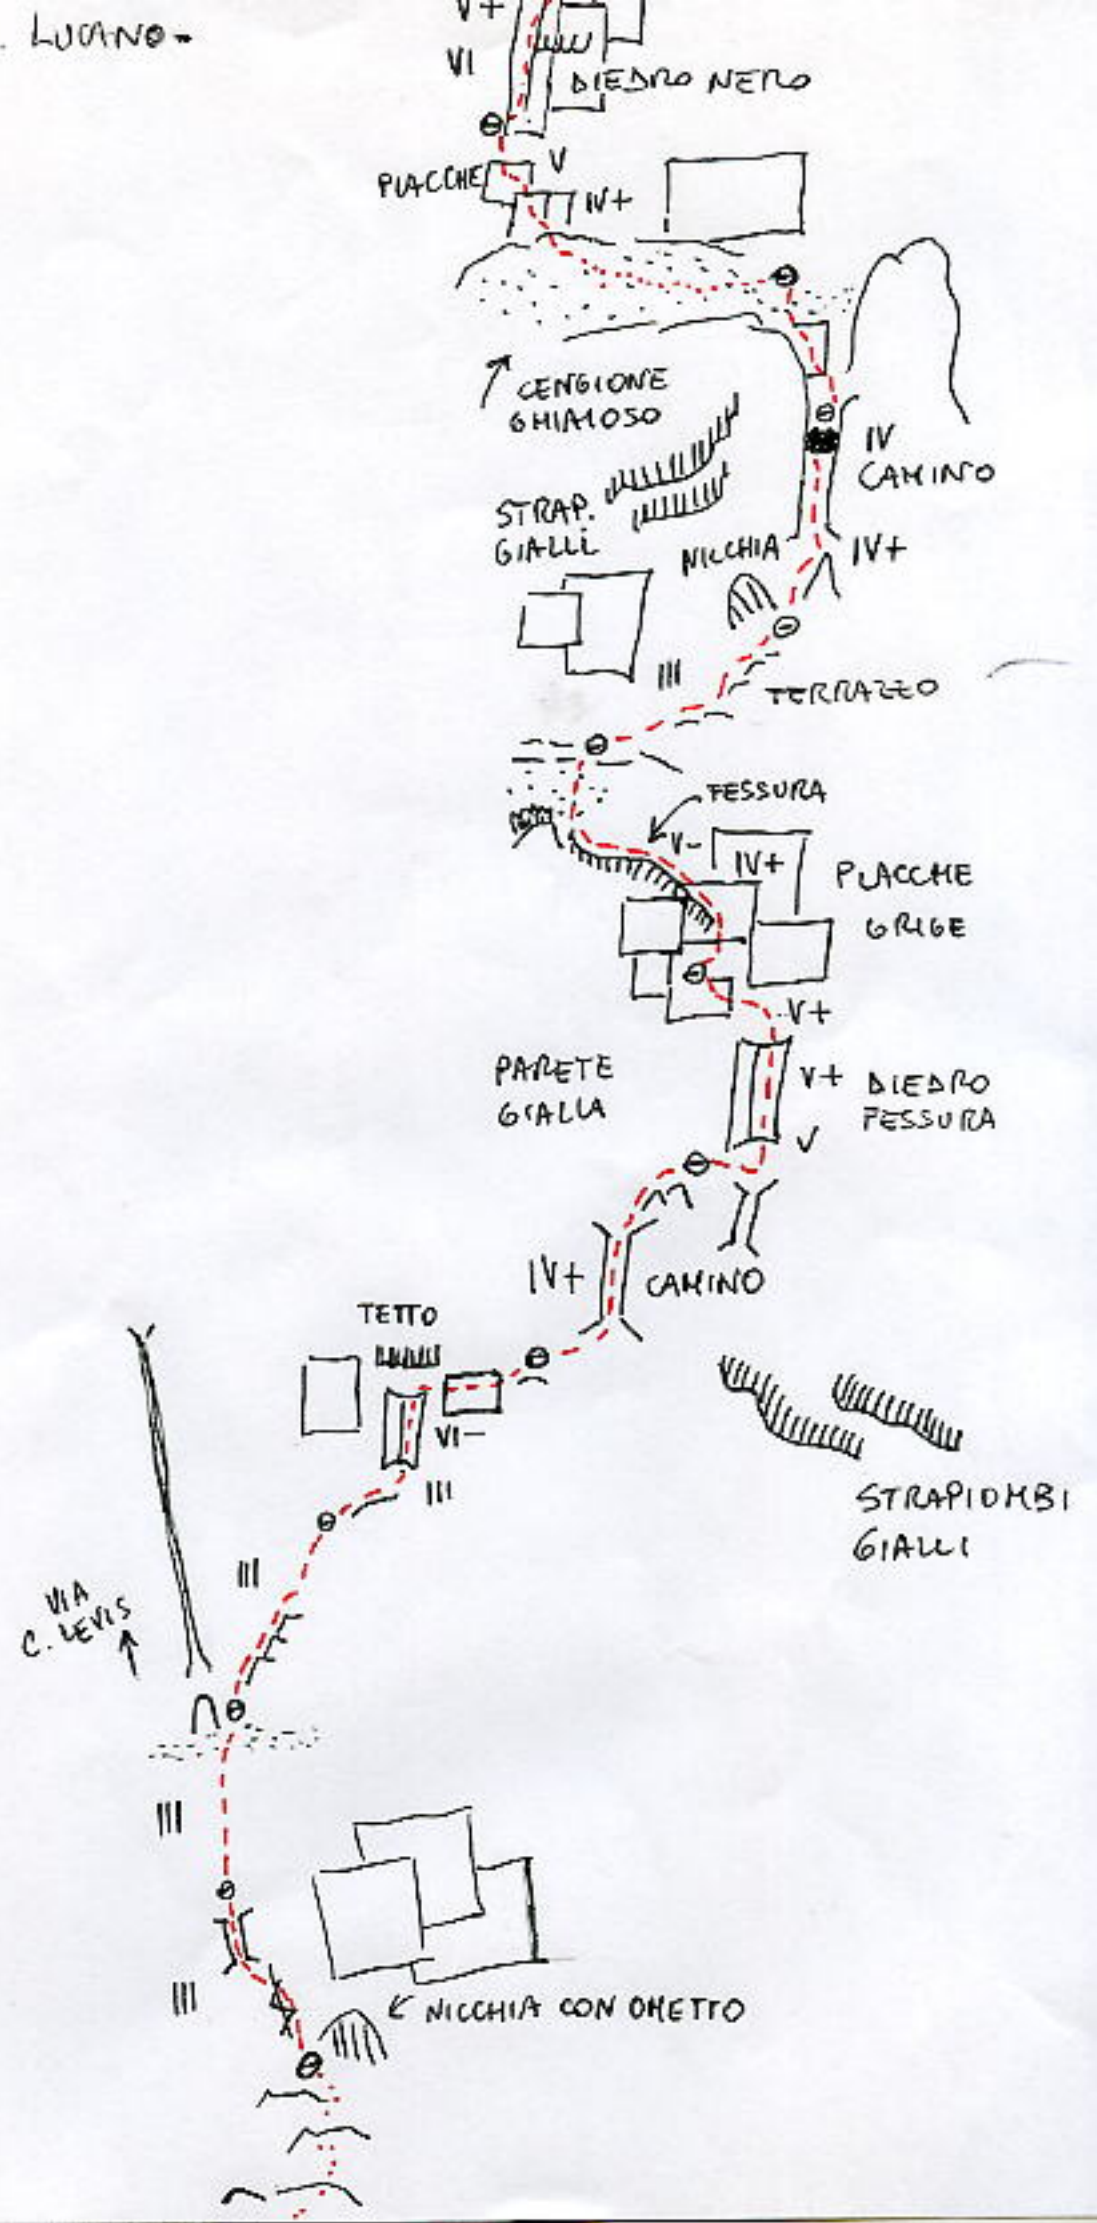 . LUCANO-
V+
VI
DIEDRO NERO
V
PLACCHE
IV+
CENGIONE
GHIAIOSO
IV
CAMINO
STRAP.
GIALLI
NICCHIA
IV+
III
TERRAZZO
FESSURA
V-
IV+
PLACCHE
GRIGE
V+
PARETE
GIALLA
V+
DIEDRO
FESSURA
V
IV+
CAMINO
TETTO
VI-
III
STRAPIOMBI
GIALLI
III
VIA
C. LEVIS
III
III
NICCHIA CON OMETTO